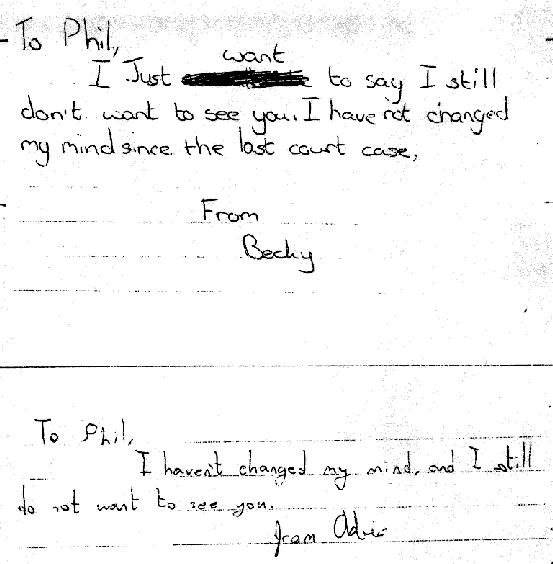 To Phil,
want
I Just to say I still
don't want to see you. I have not changed
my mind since the last court case,
From
Becky
To Phil,
I haven't changed my mind, and I still
do not want to see you.
from